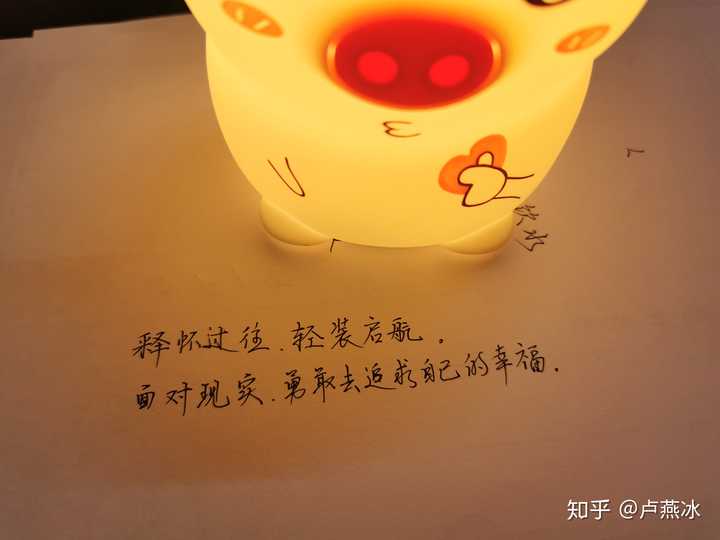 饮水
释怀过往.轻装启航。
面对现实.勇敢去追求自己的幸福.
知乎 @卢燕冰